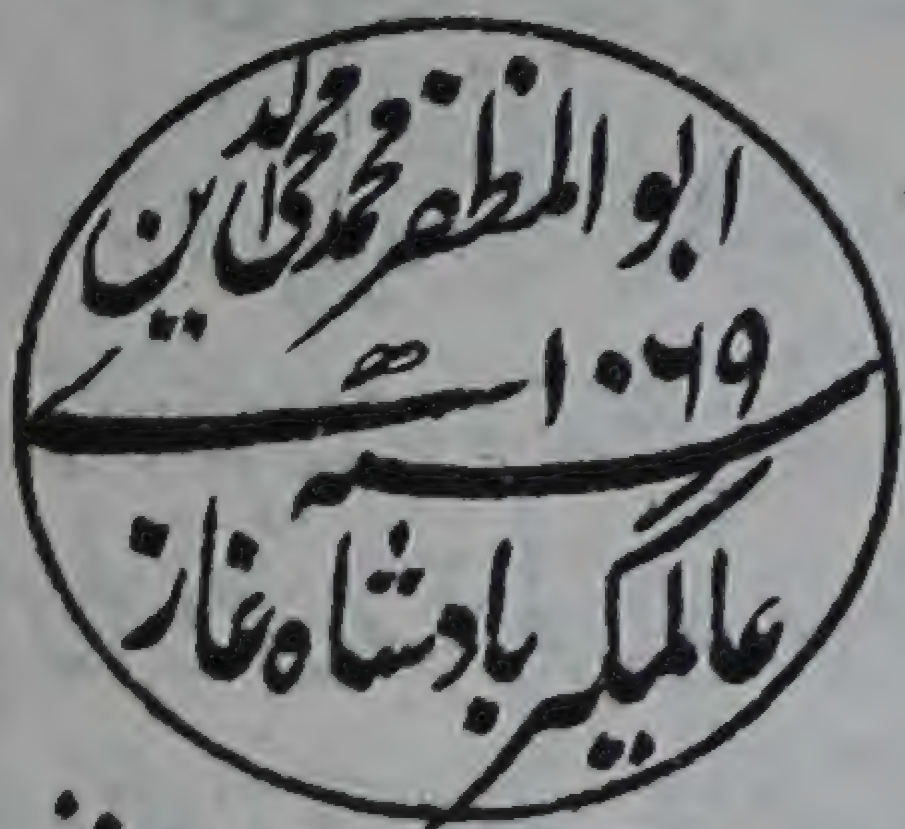 ابو المظفر محمد محی الدین
سنہ ۱۰۶۹ ھ
عالمگیر بادشاہ غازی